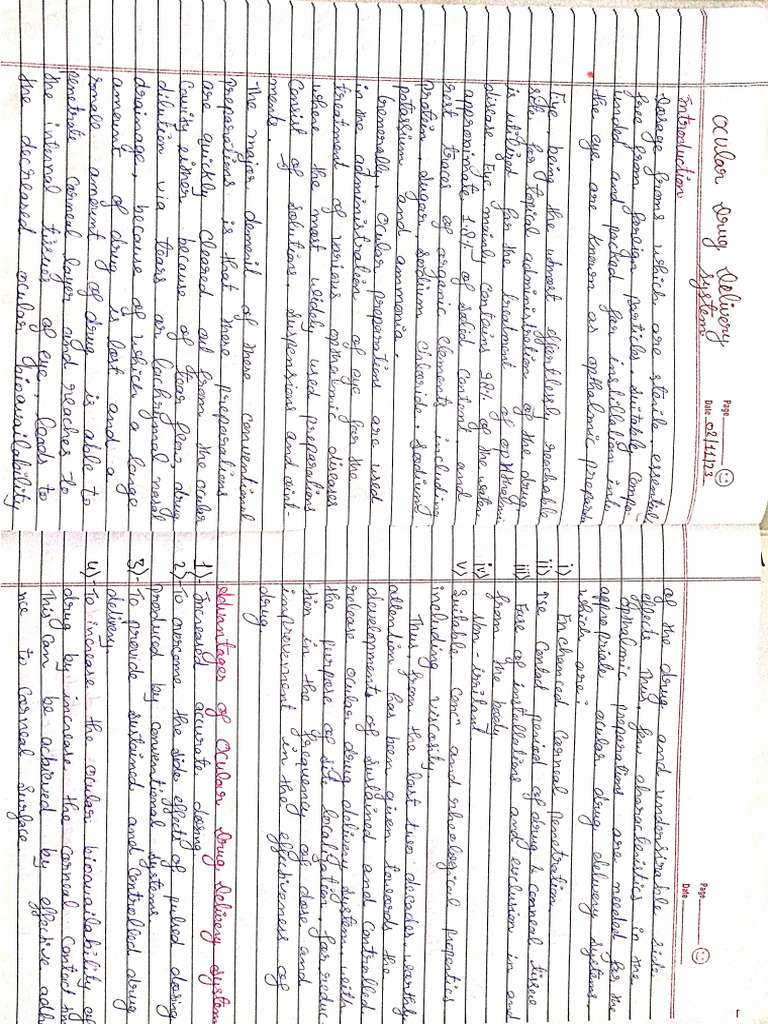 Ocular Drug Delivery
System
Page
Date 02/11/23
Introduction
Dosage froms which are sterile, essentiall
free from foreign particles, suitably compo
unded and packed for instillation into
the eye are known as opthalmic prepara
Eye, being the utmost effortlessly reachable
site for topical administration of the drug
is utilized for the treatment of opthalmi
disease. Eye mainly contains 98% of the water,
approximate 1.8% of solid content and
rest traces of organic elements including
protein, sugar, sodium chloride, sodium
potassium and ammonia.
Generally, ocular preparations are used
in the administration of eye for the
treatment of various opthalmic diseases
where the most widely used preparations
consist of solutions, suspensions and oint-
ments.
The major demerit of these conventional
preparations is that these preparations
are quickly cleared out from the ocular
cavity either because of tear flow, drug
dilution via tears or lachrymal nasal
drainage, because of which a large
amount of drug is lost and a
small amount of drug is able to
penetrate corneal layer and reaches to
the internal tissues of eye, leads to
the decreased ocular bioavailability
Page
Date
of the drug and undersirable side
effects. Thus, few characteristics in the
opthalmic preparations are needed for the
appropriate ocular drug delivery systems,
which are:
i) Enchanced corneal penetration.
ii) The contact period of drug & corneal tissue
iii) Ease of installations and evclusion in and
from the body
iv) Non-irritant
v) Suitable conⁿ and rheological properties
including viscosity.
Thus, from the last two decades, worthy
attention has been given towards the
developments of sustained and controlled
release ocular drug delivery system, with
the purpose of site localization, for reduc-
tion in the frequency of dose and
improvement in the effectiveness of
drug.
Advantages of Ocular Drug Delivery System
1)- Increased accurate dosing
2)- To overcome the side effects of pulsed dosing
produced by conventional systems
3)- To provide sustained and controlled drug
delivery.
4)- To increase the ocular bioavailability of
drug by increase the corneal contact
This can be achieved by effective adhe
nce to corneal surface.